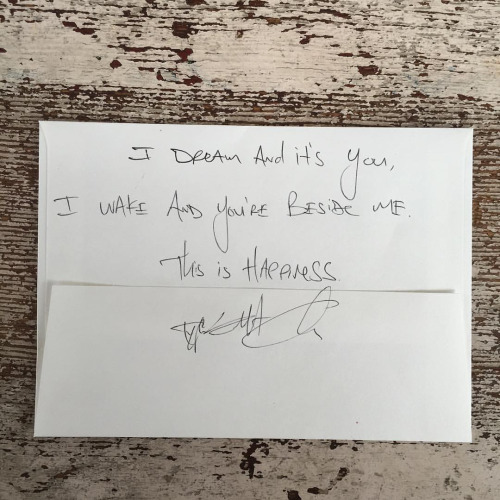 I Dream And it's you,
I wake And you're Beside me.
This is Happiness